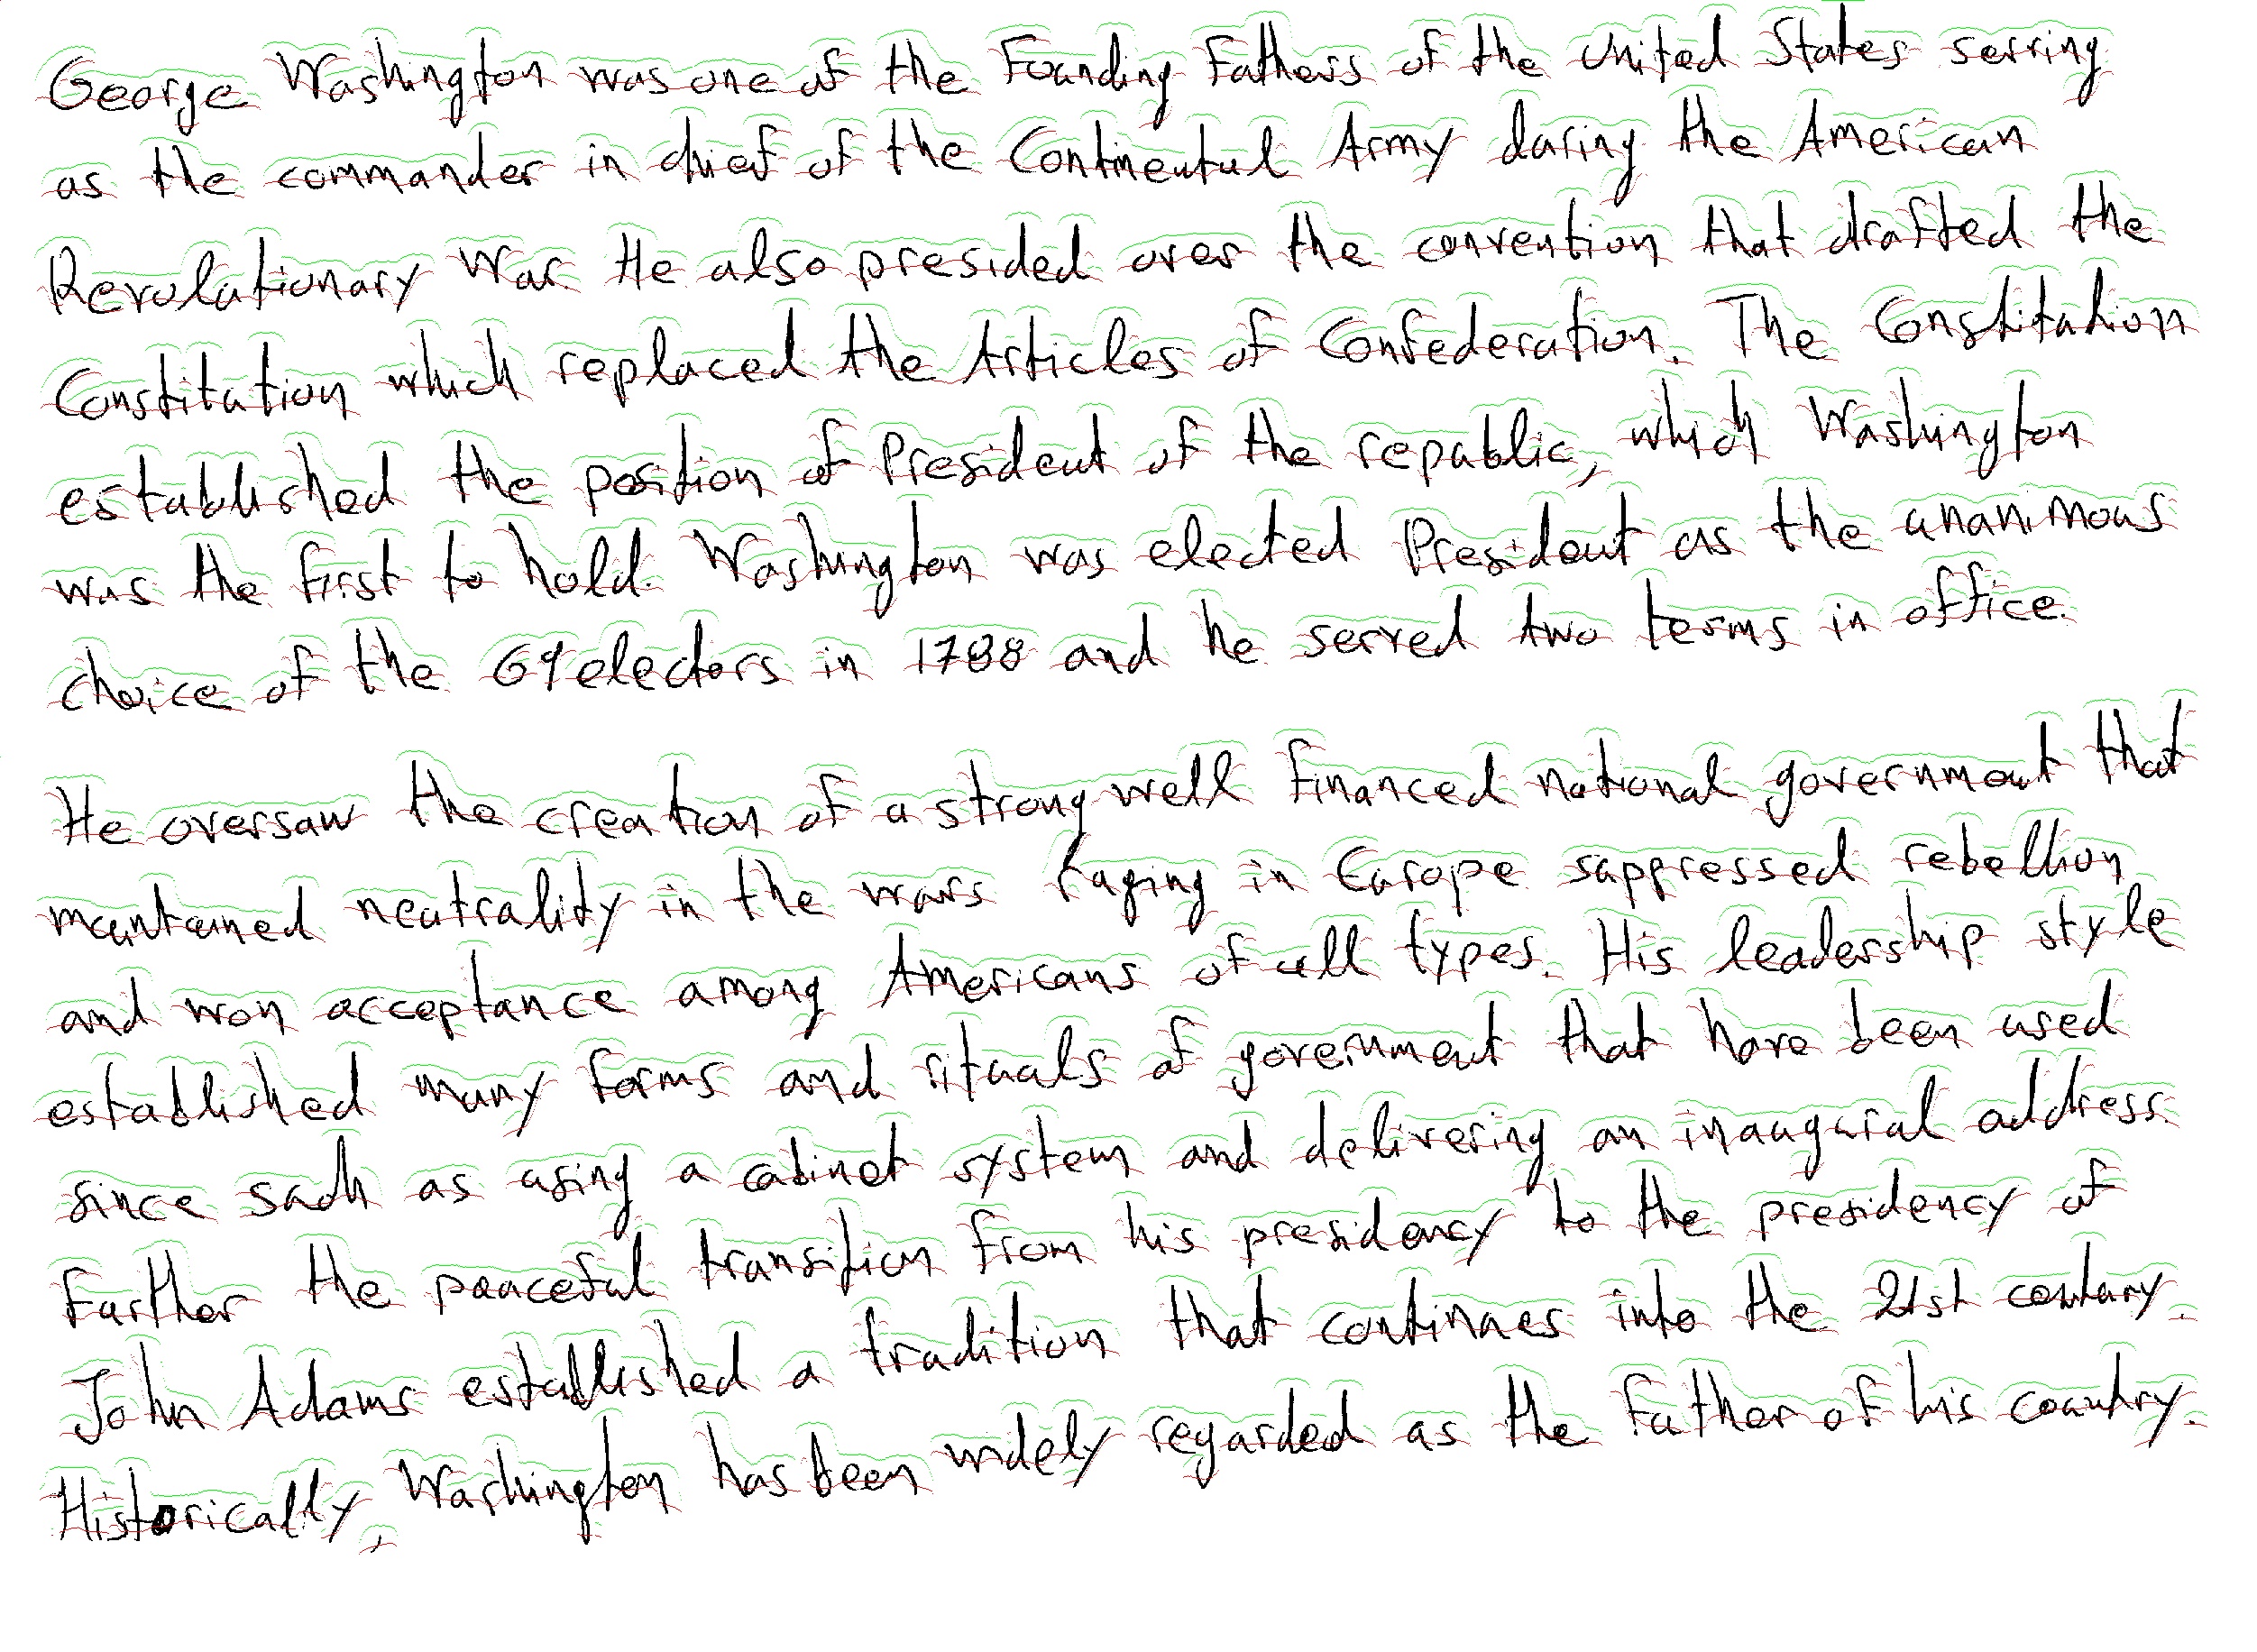 George Washington was one of the Founding Fathers of the United States serving
as the commander in chief of the Continental Army during the American
Revolutionary War. He also presided over the convention that drafted the
Constitution which replaced the Articles of Confederation. The Constitution
established the position of President of the republic, which Washington
was the first to hold. Washington was elected President as the unanimous
choice of the 69 electors in 1788 and he served two terms in office.
He oversaw the creation of a strong well financed national government that
maintained neutrality in the wars raging in Europe suppressed rebellion
and won acceptance among Americans of all types. His leadership style
established many forms and rituals of government that have been used
since such as using a cabinet system and delivering an inaugural address.
Further the peaceful transition from his presidency to the presidency of
John Adams established a tradition that continues into the 21st century.
Historically, Washington has been widely regarded as the Father of his country.